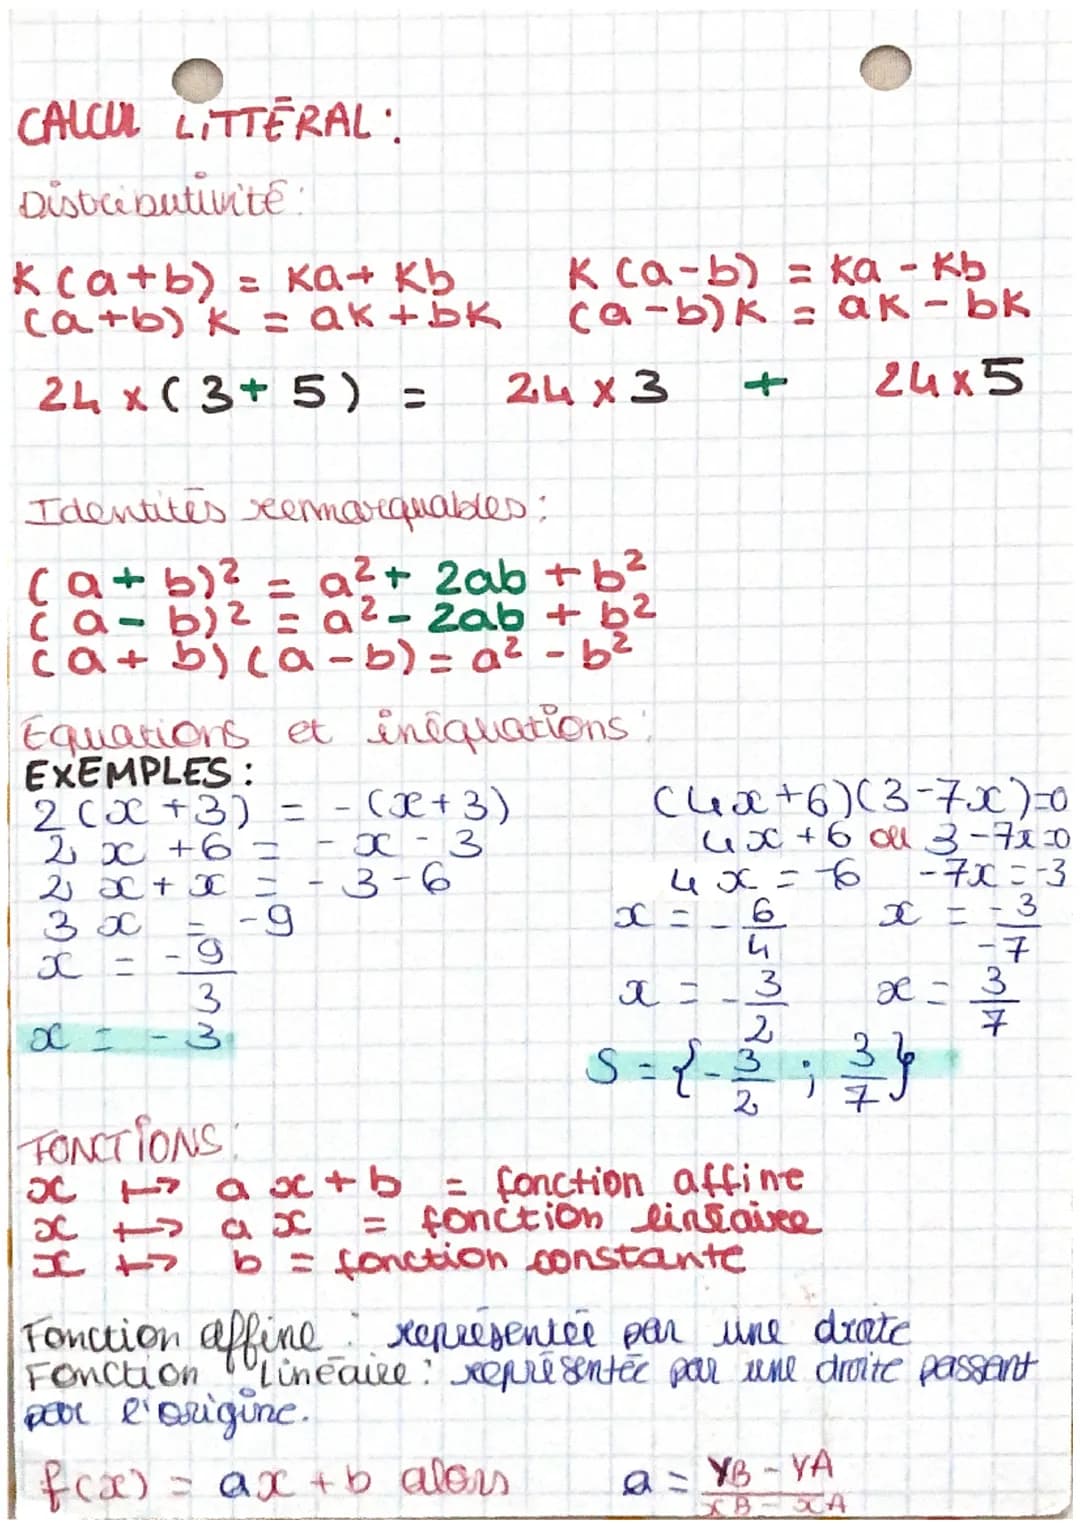 CALCUL LITTÉRAL :
Distributivité :
K (a+b) = Ka + Kb    K (a-b) = Ka - Kb
(a+b) K = aK + bK    (a-b) K = aK - bK
24 x (3 + 5) = 24 x 3 + 24 x 5
Identités remarquables :
(a + b)² = a² + 2ab + b²
(a - b)² = a² - 2ab + b²
(a + b) (a - b) = a² - b²
Equations et inéquations :
EXEMPLES :
2 (x + 3) = - (x + 3)
2 x + 6 = - x - 3
2 x + x = - 3 - 6
3 x = - 9
x = -9/3
x = - 3
(4x + 6)(3 - 7x) = 0
4x + 6 ou 3 - 7x = 0
4x = -6    -7x = -3
x = -6/4    x = -3/-7
x = -3/2    x = 3/7
S = {-3/2 ; 3/7}
FONCTIONS :
x ↦ a x + b = fonction affine
x ↦ a x = fonction linéaire
x ↦ b = fonction constante
Fonction affine : représentée par une droite
Fonction linéaire : représentée par une droite passant
par l'origine.
f(x) = ax + b alors    a = YB - YA / xB - xA